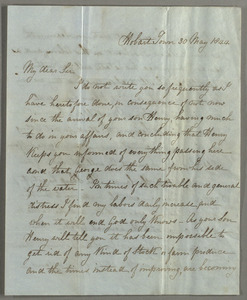 Hobart Town 30 May 1844
My dear Sir
I do not write you so frequently as I
have heretofore done, in consequence of not now
since the arrival of your son Henry, having much
to do in your affairs, and concluding that Henry
keeps you informed of everything passing here
and that George does the same from his side
of the water. In times of such trouble and general
distress I find my labors daily increase and
when it will end God only knows. As your Son
Henry will tell you it has been impossible to
get rid of any kind of Stock or farm produce
and the times instead of improving are becoming